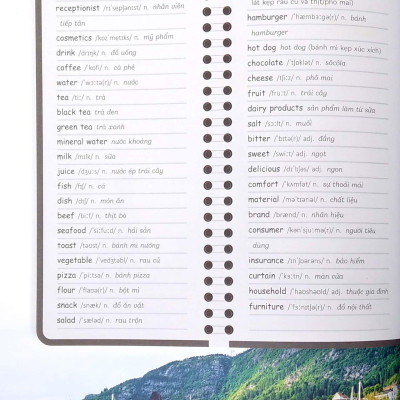 receptionist /rɪˈsepʃənɪst/ n. nhân viên
tiếp tân
cosmetics /kɒzˈmetɪks/ n. mỹ phẩm
drink /drɪŋk/ n. đồ uống
coffee /ˈkɒfi/ n. cà phê
water /ˈwɔːtə(r)/ n. nước
tea /tiː/ n. trà
black tea trà đen
green tea trà xanh
mineral water nước khoáng
milk /mɪlk/ n. sữa
juice /dʒuːs/ n. nước ép trái cây
fish /fɪʃ/ n. cá
dish /dɪʃ/ n. món ăn
beef /biːf/ n. thịt bò
seafood /ˈsiːfuːd/ n. hải sản
toast /təʊst/ n. bánh mì nướng
vegetable /ˈvedʒtəbl/ n. rau củ
pizza /ˈpiːtsə/ n. bánh pizza
flour /ˈflaʊə(r)/ n. bột mì
snack /snæk/ n. đồ ăn vặt
salad /ˈsæləd/ n. rau trộn
lát kẹp rau củ và thịt/phô mai)
hamburger /ˈhæmbɜːɡə(r)/ n. bánh
hamburger
hot dog hot dog (bánh mì kẹp xúc xích)
chocolate /ˈtʃɒklət/ n. sôcôla
cheese /tʃiːz/ n. phô mai
fruit /fruːt/ n. trái cây
dairy products sản phẩm làm từ sữa
salt /sɔːlt/ n. muối
bitter /ˈbɪtə(r)/ adj. đắng
sweet /swiːt/ adj. ngọt
delicious /dɪˈlɪʃəs/ adj. ngon
comfort /ˈkʌmfət/ n. sự thoải mái
material /məˈtɪəriəl/ n. chất liệu
brand /brænd/ n. nhãn hiệu
consumer /kənˈsjuːmə(r)/ n. người tiêu
dùng
insurance /ɪnˈʃʊərəns/ n. bảo hiểm
curtain /ˈkɜːtn/ n. màn cửa
household /ˈhaʊshəʊld/ adj. thuộc gia đình
furniture /ˈfɜːnɪtʃə(r)/ n. đồ nội thất